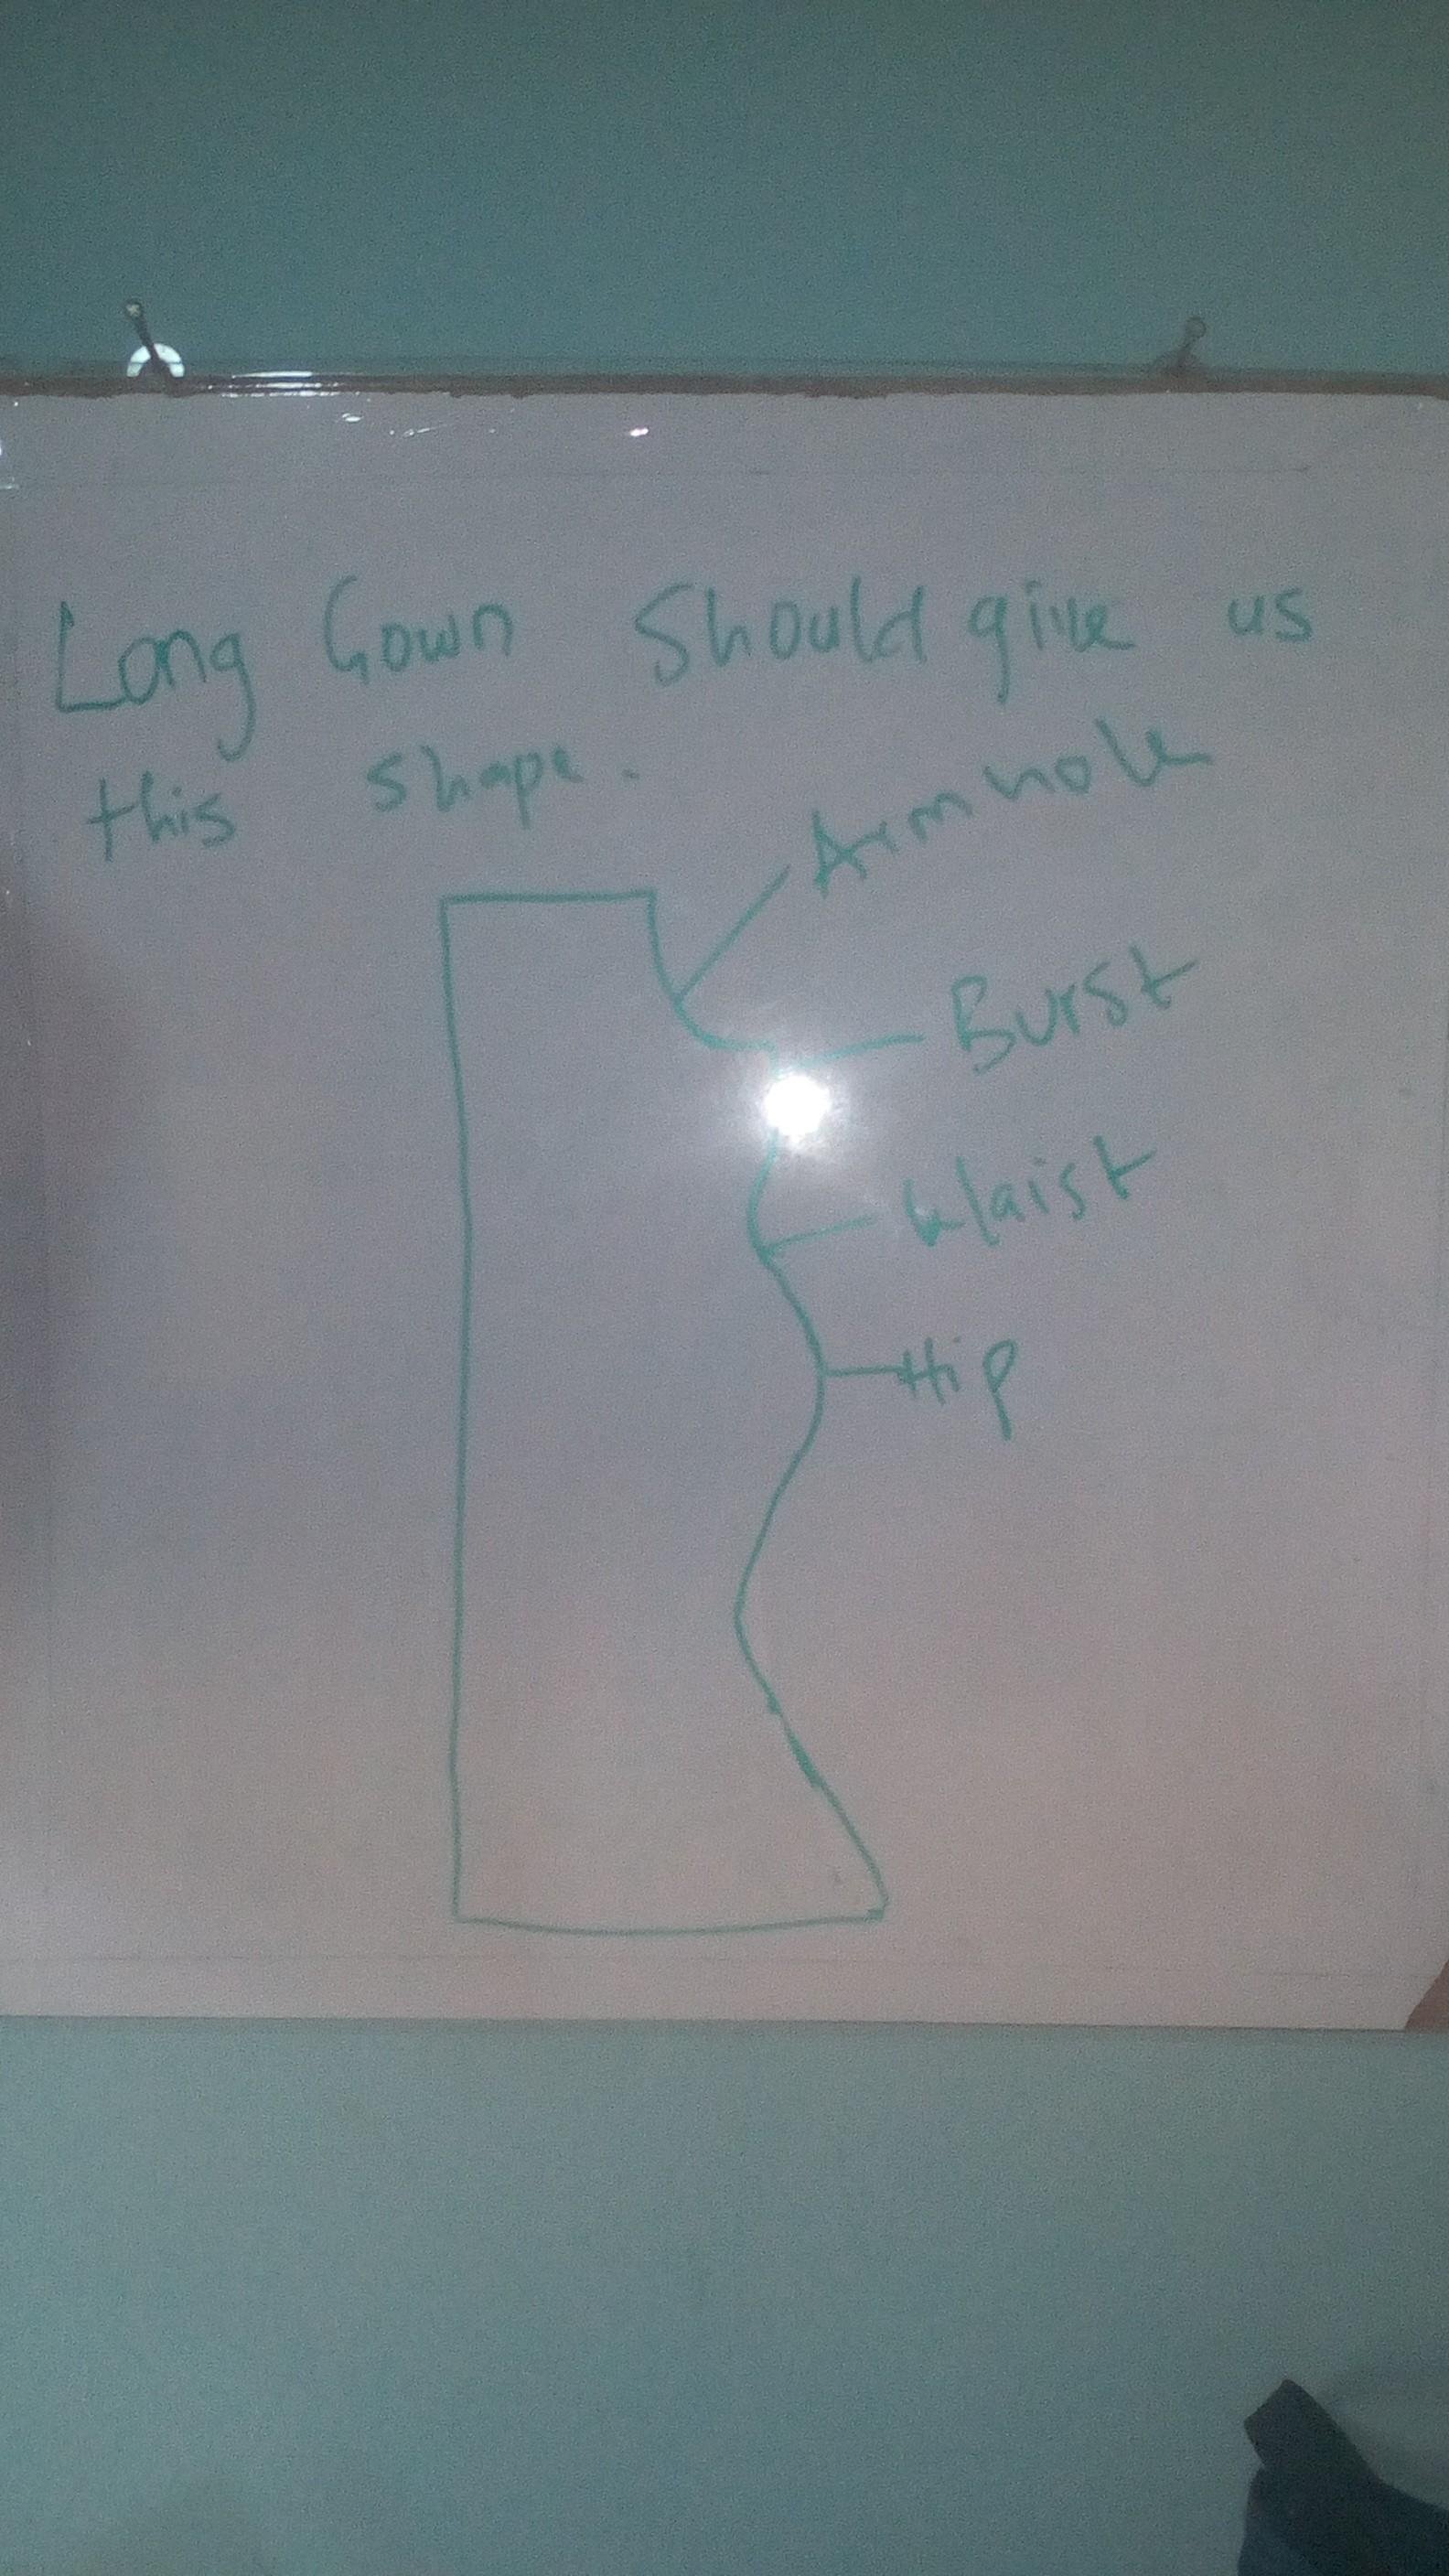 Long Gown should give us
this shape.
Armhole
Burst
Waist
Hip